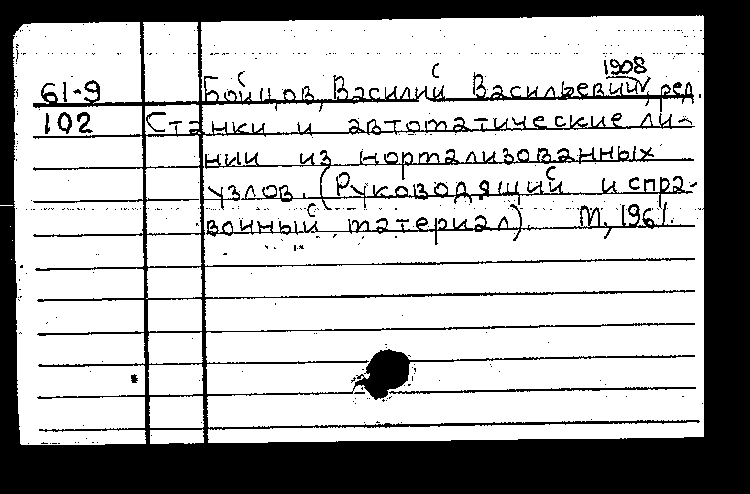 1908
61-9 Бойцов, Василий Васильевич, ред.
102 Станки и автоматические ли-
нии из нормализованных
узлов. (Руководящий и спра-
вочный материал). М, 1961.